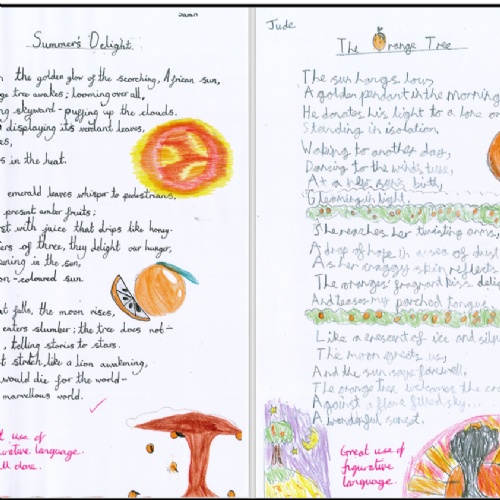 Summer's Delight
the golden glow of the scorching, African sun,
tree awakes; looming over all,
skyward - puffing up the clouds.
displaying its verdant leaves,
in the heat.
emerald leaves whisper to pedestrians,
present amber fruits;
with juice that drips like honey.
of three, they delight our hunger,
in the sun,
coloured sun.
falls, the moon rises,
enters slumber; the tree does not -
, telling stories to stars.
stretch, like a lion awakening,
would die for the world -
marvellous world.
use of
language.
done.
Jude
The Orange Tree
The sun hangs low,
A golden pendant in the morning
He donates his light to a lone
Standing in isolation,
Waking to another day,
Dancing to the winds tune,
At a new sun's birth,
Gleaming in light.
She reaches her twisting arms,
A drop of hope in a sea of dust
As her craggy skin reflects
The oranges' fragrant kiss
And teases my parched tongue.
Like a crescent of ice and
The moon greets us,
And the sun says farewell,
The orange tree welcomes the
Against a flame filled sky...
A wonderful sunset.
Great use of
figurative
language.